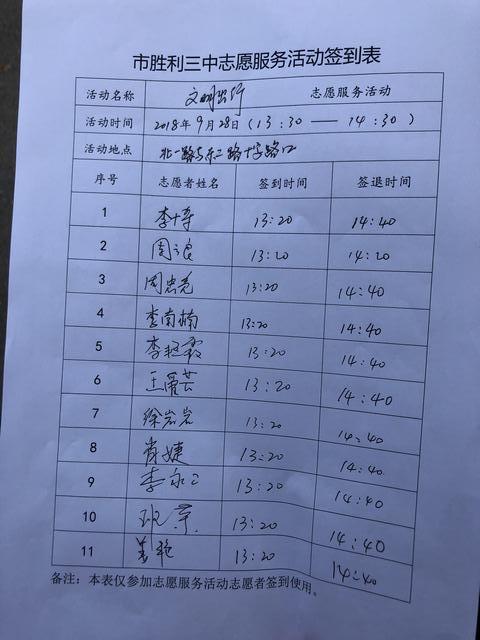 市胜利三中志愿服务活动签到表
活动名称 文明出行 志愿服务活动
活动时间 2018年9月28日(13:30 —— 14:30)
活动地点 北一路与东二路十字路口
序号 志愿者姓名 签到时间 签退时间
1 13:20 14:40
2 13:20 14:20
3 周忠尧 13:20 14:40
4 李南楠 13:20 14:40
5 13:20 14:40
6 13:20 14:40
7 徐岩岩 13:20 14:40
8 肖婕 13:20 14:40
9 13:20 14:40
10 13:20 14:40
11 姜艳 13:20 14:40
备注：本表仅参加志愿服务活动志愿者签到使用。